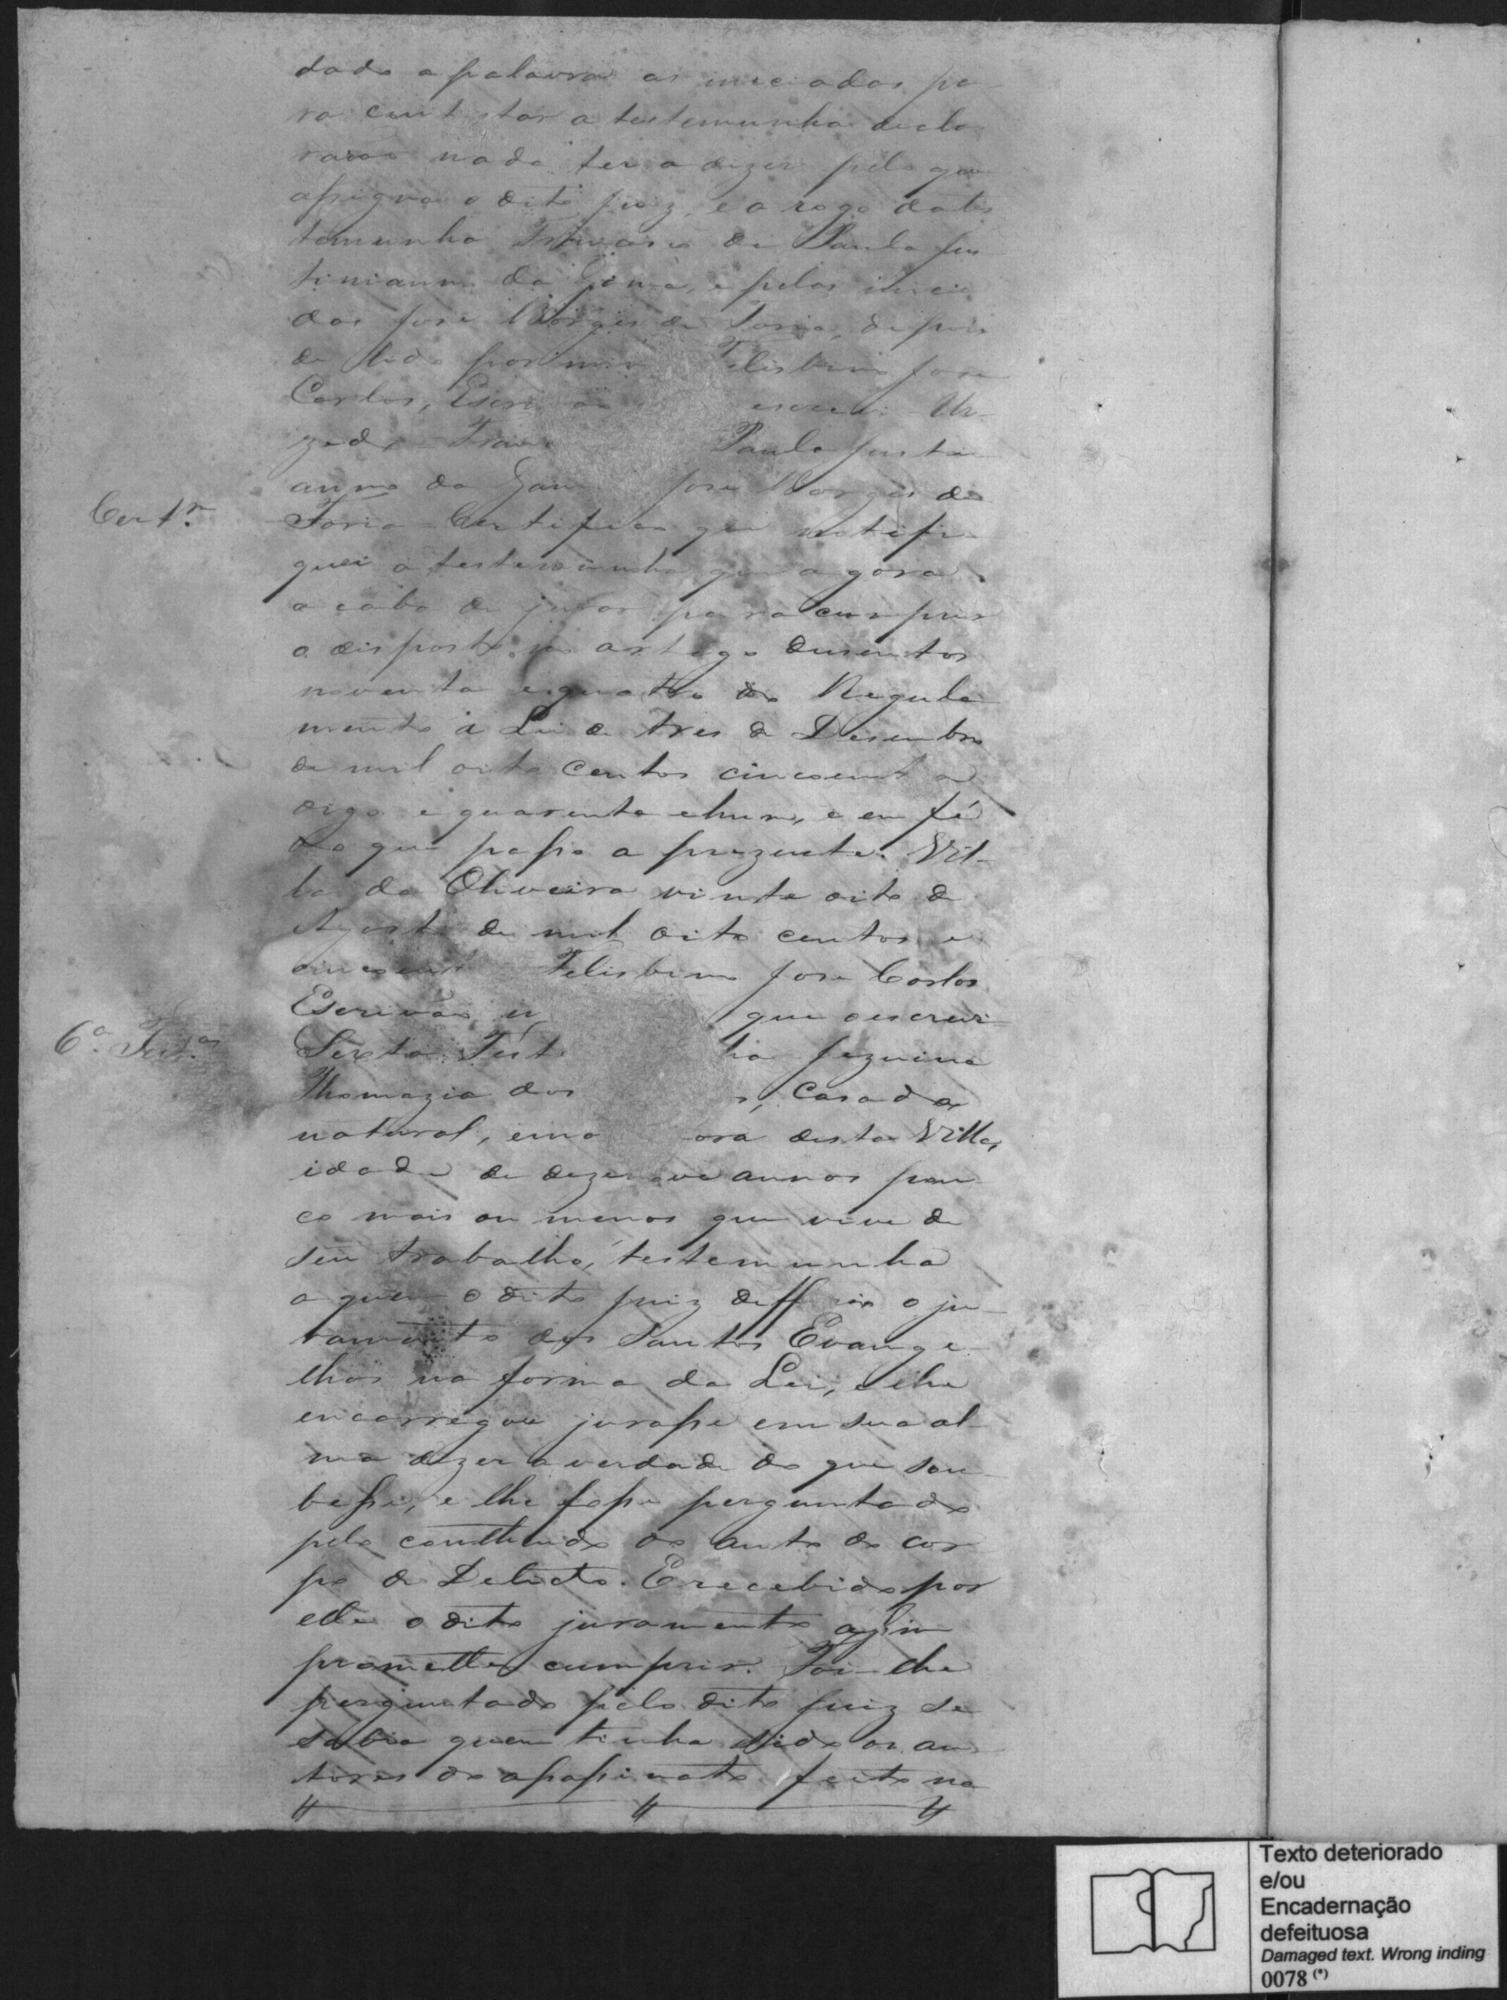 dado a palavra as iniciados pa
ra contestar a testemunha decla
rarão nada ter a dizer pelo que
assigna o dito Juiz, e a rogo da tes
temunha Francisco de Paula Jus
tinianno da Gama, e pelos inicia
dos José Borges de Faria, depois
de lido por mim Felisbino José
Carlos, Escrivão escrevi Ur
zedo Fran Paula Justi
anno da Gam José Borges de
Certm.
Faria Certifico que notifi
quei a testemunha que agora
acaba de jurar para cumprir
o disposto no artigo dusentos
noventa e quatro do Regula
mento á Lei de tres de Desembro
de mil oito centos cincoenta
digo e quarenta e hum, e em fé
do que passo a prezente. Vil-
la da Oliveira vinte oito de
Agosto de mil oito centos e
cincoent Felisbino José Carlos
Escrivão que o escrevi
6.a Test.as
Sexta Test ha Jezuina
Thomazia dos s, casada
natural, e mo ora desta Villa,
idade de dezenove annos pou
co mais ou menos que vive de
seu trabalho, testemunha
a quem o dito Juiz defferio o ju-
ramento dos Santos Evange-
lhos na forma da Lei, e lhe
encarregou jurasse em sua al-
ma dizer a verdade do que sou-
besse, e lhe fosse perguntado
pelo conttheudo do auto de cor
po de Delicto. E recebido por
elle o dito juramento assim
prometteo cumprir. Foi-lhe
perguntado pelo dito Juiz se
sabia quem tinha sido os au-
tores do assassinato feito na
Texto deteriorado
e/ou
Encadernação
defeituosa
Damaged text. Wrong inding
0078 (*)